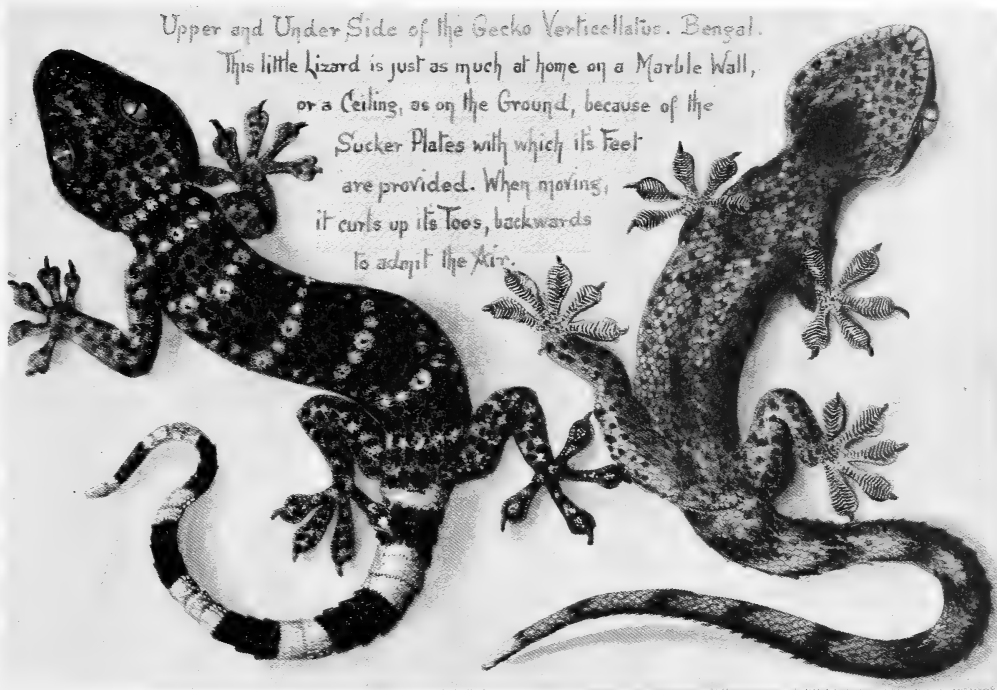 Upper and Under Side of the Gecko Verticellatus. Bengal.
This little Lizard is just as much at home on a Marble Wall,
or a Ceiling, as on the Ground, because of the
Sucker Plates with which its Feet
are provided. When moving,
it curls up its Toes, backwards
to admit the Air.